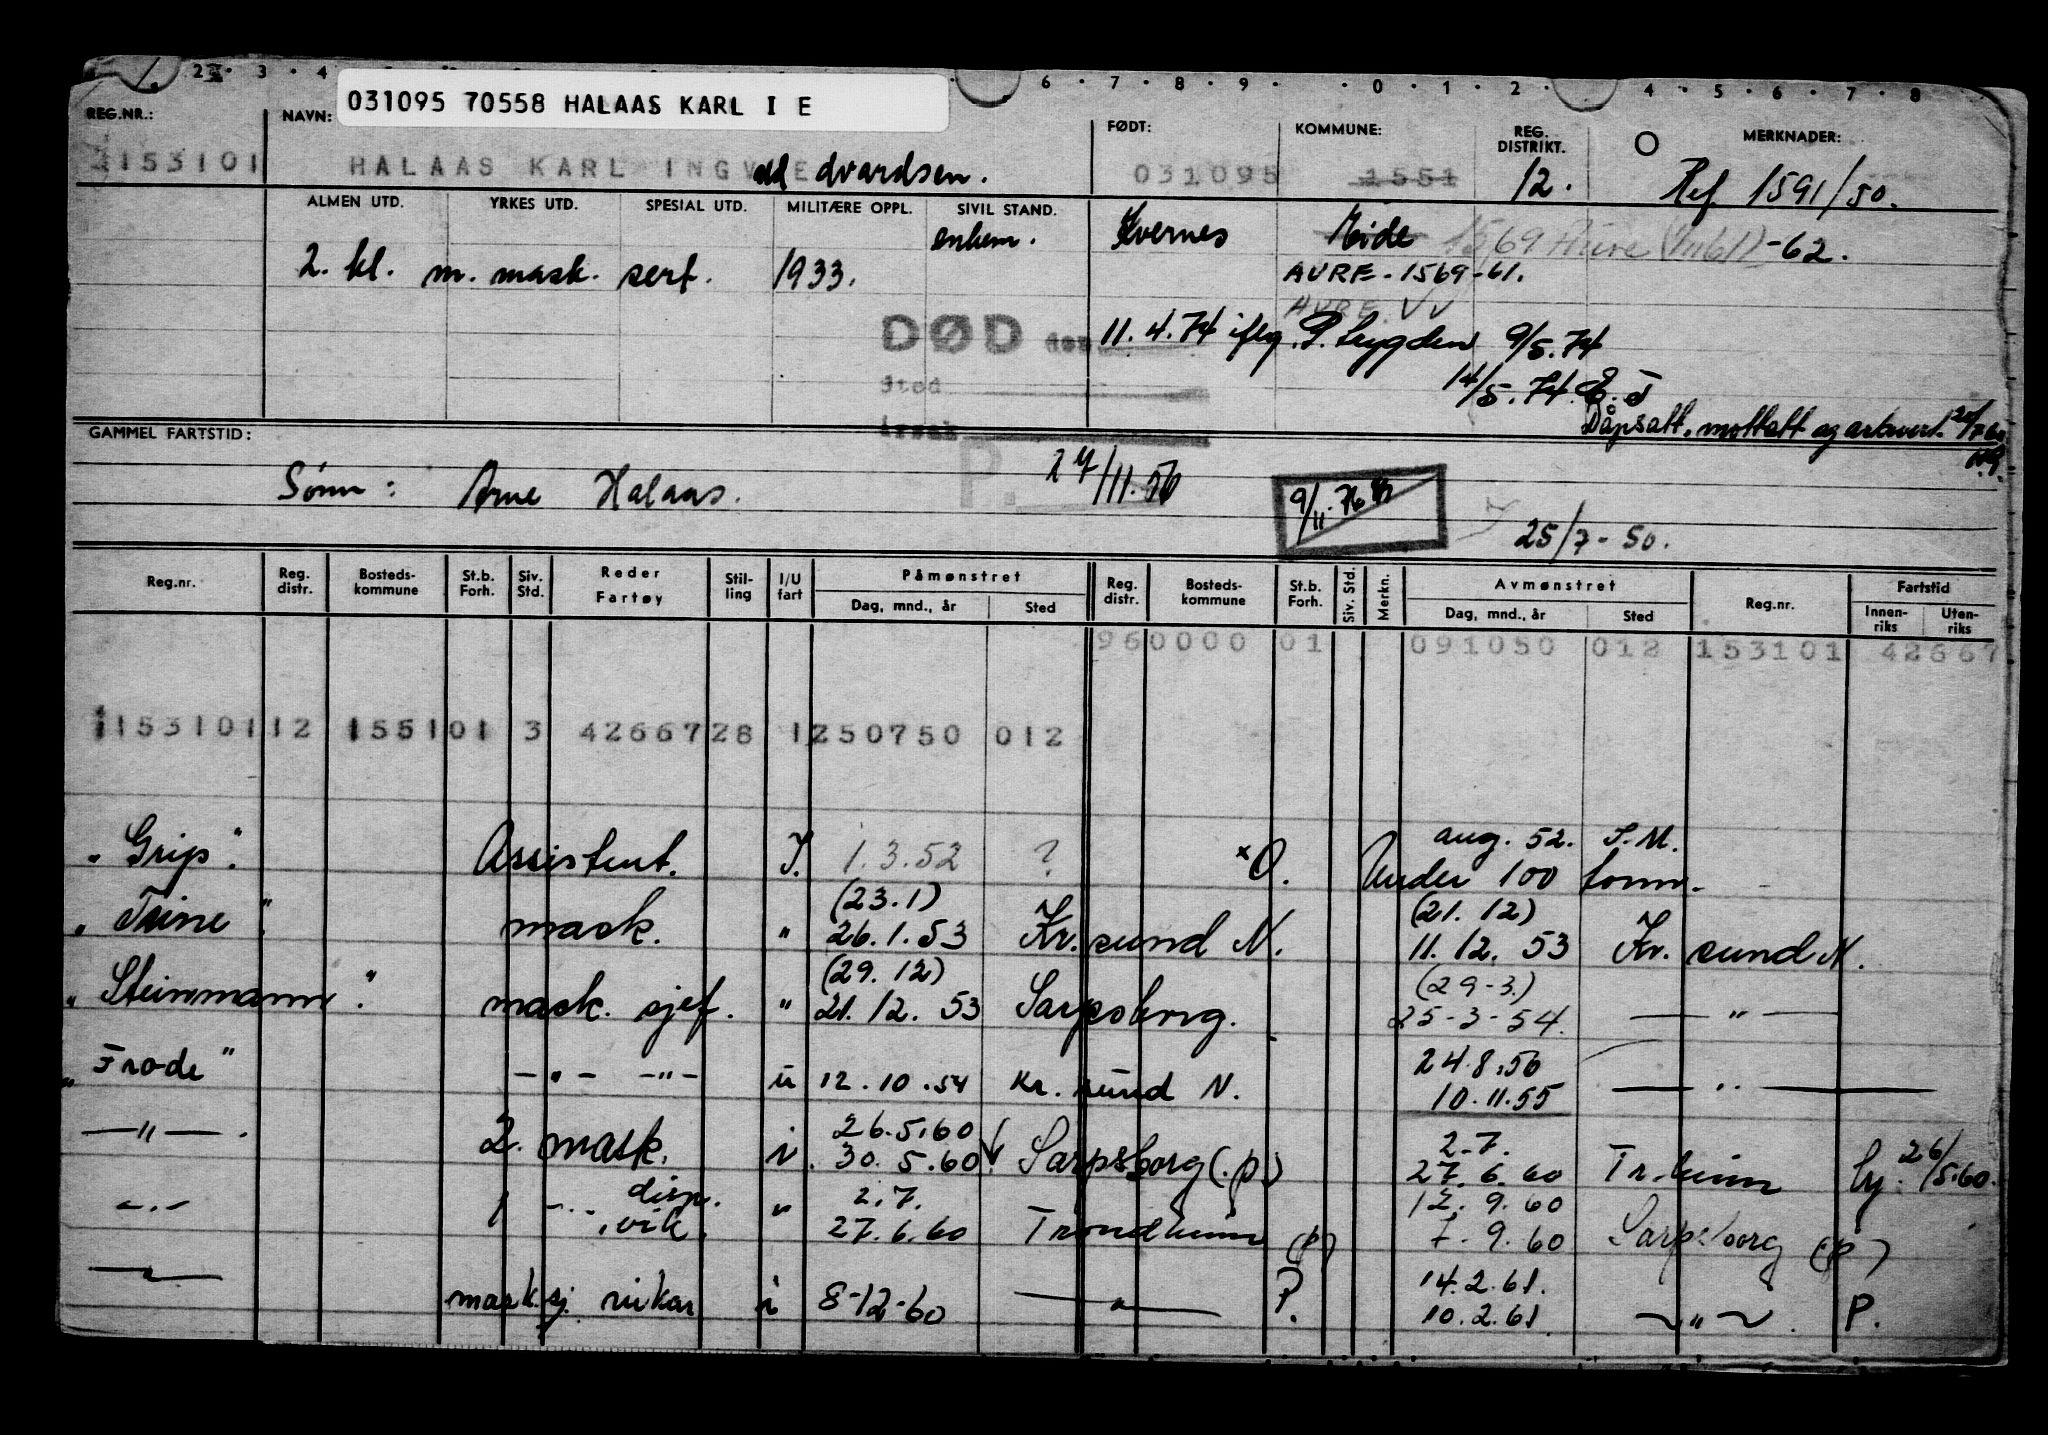 1. 2 3 4 6 7 8 9 0 1 2 4 5 6 7 8
031095 70558 HALAAS KARL I E
REG.NR.: NAVN: FØDT: KOMMUNE: REG. DISTRIKT. MERKNADER:
1153101 HALAAS KARL INGV E dvardsen. 031095 1551 12. Ref 1591/50.
ALMEN UTD. YRKES UTD. SPESIAL UTD. MILITÆRE OPPL. SIVIL STAND.
enkem. Kvernes Eide 1569 -62.
2. kl. m. mask. sert. 1933. AURE - 1569-61.
AURE
DØD den 11.4.74 iflg. 9/5.74
Sted 14/5.74.
Årsak Dåpsatt. mottatt og arkivert.
GAMMEL FARTSTID:
Sønn: Arne Halaas. P. 27/11.56 9/11.76 25/7-50.
Reg.nr. Reg. distr. Bosteds-kommune St.b. Forh. Siv. Std. Reder Fartøy Stil-ling I/U fart Påmønstret Reg. distr. Bosteds-kommune St.b. Forh. Siv. Std. Merkn. Avmønstret Reg.nr. Fartstid
Dag, mnd., år Sted Dag, mnd., år Sted Innen-riks Uten-riks
960000 01 091050 012 153101 42667
115310112 155101 3 4266728 1250750 012
aug. 52. S.M.
"Grip". Assistent. I. 1.3.52 ? xO. Under 100 tonn.
(23.1) (21.12)
"Trine". mask. " 26.1.53 Kr.sund N. 11.12.53 Kr.sund N.
(29.12) (29-3.)
"Steinmann". mask. sjef. " 21.12.53 Sarpsborg. 25-3-54. — " —
24.8.56
"Frode" — " — — " — u 12.10.54 Kr.sund N. 10.11.55 — " —
26.5.60 2.7.
— " —. 2. mask. i 30.5.60. Sarpsborg (p) 27.6.60 Tr.heim 26/5.60.
disp. 2.7. 12.9.60
— " — 1 — " — vik. " 27.6.60 Trondheim (p) 7.9.60 Sarpsborg (p)
14.2.61.
— " — mask.sj. vikar i 8-12-60 — " — P. 10.2.61. — " —. P.